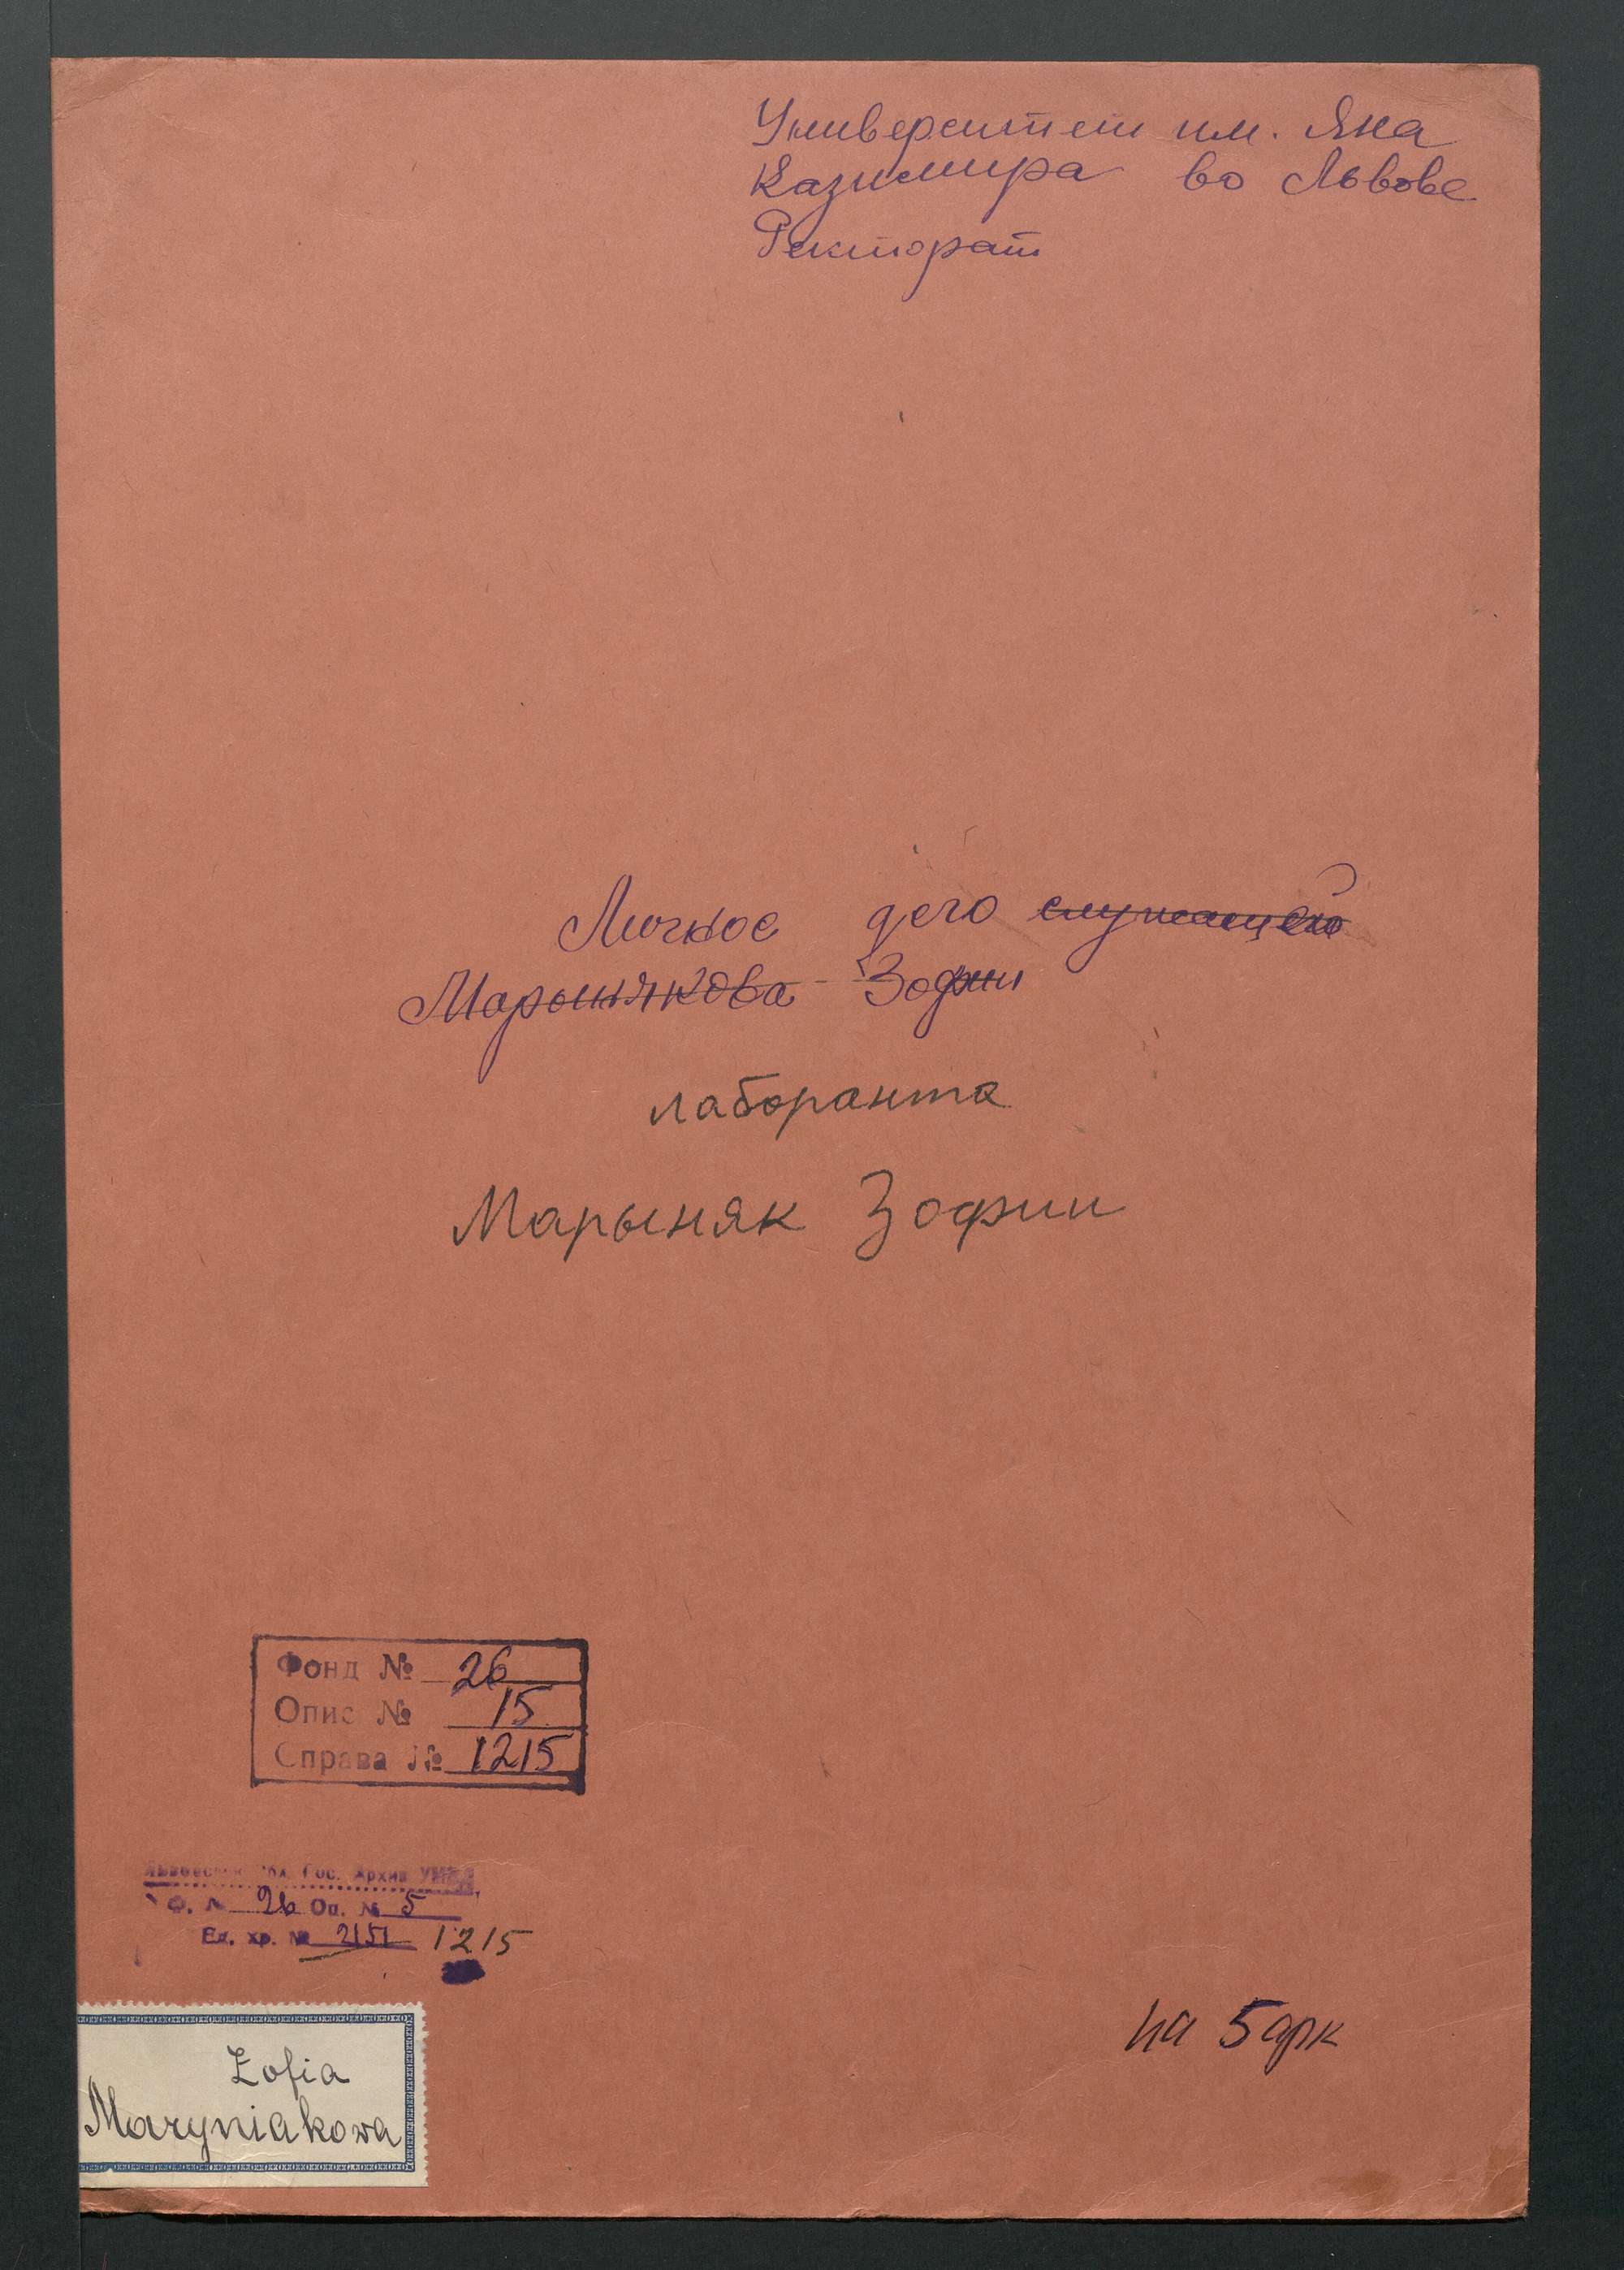 Университет им. Яна
Казимира во Львове
Ректорат
Личное дело служащей
Марынякова Зофии
лаборанта
Марыняк Зофии
Фонд № 26
Опис № 15
Справа № 1215
Гос. Архив
Ф. № 26 Оп. № 5
Ед. хр. № 2151 1215
на 5 арк
Zofia
Maryniakowa